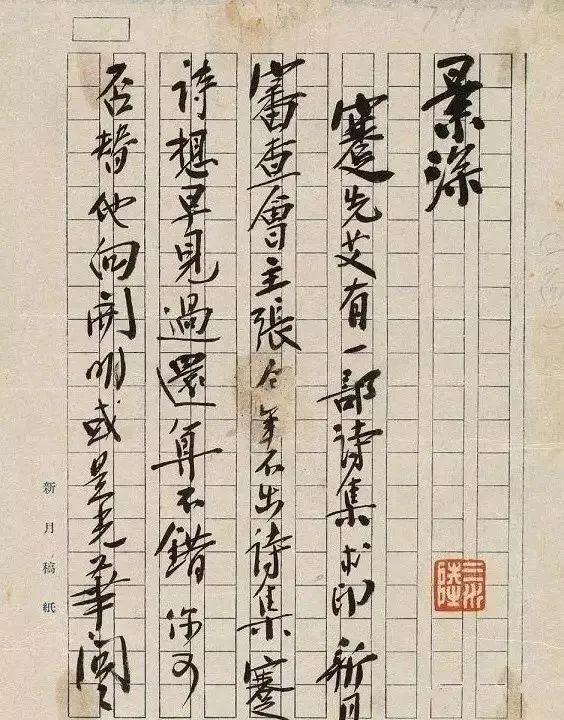 景深
蹇先艾有一部詩集求印新月
審查會主張今年不出詩集蹇
詩想早見過還算不錯你可
否替他向開明或是光華問〻
新月稿紙